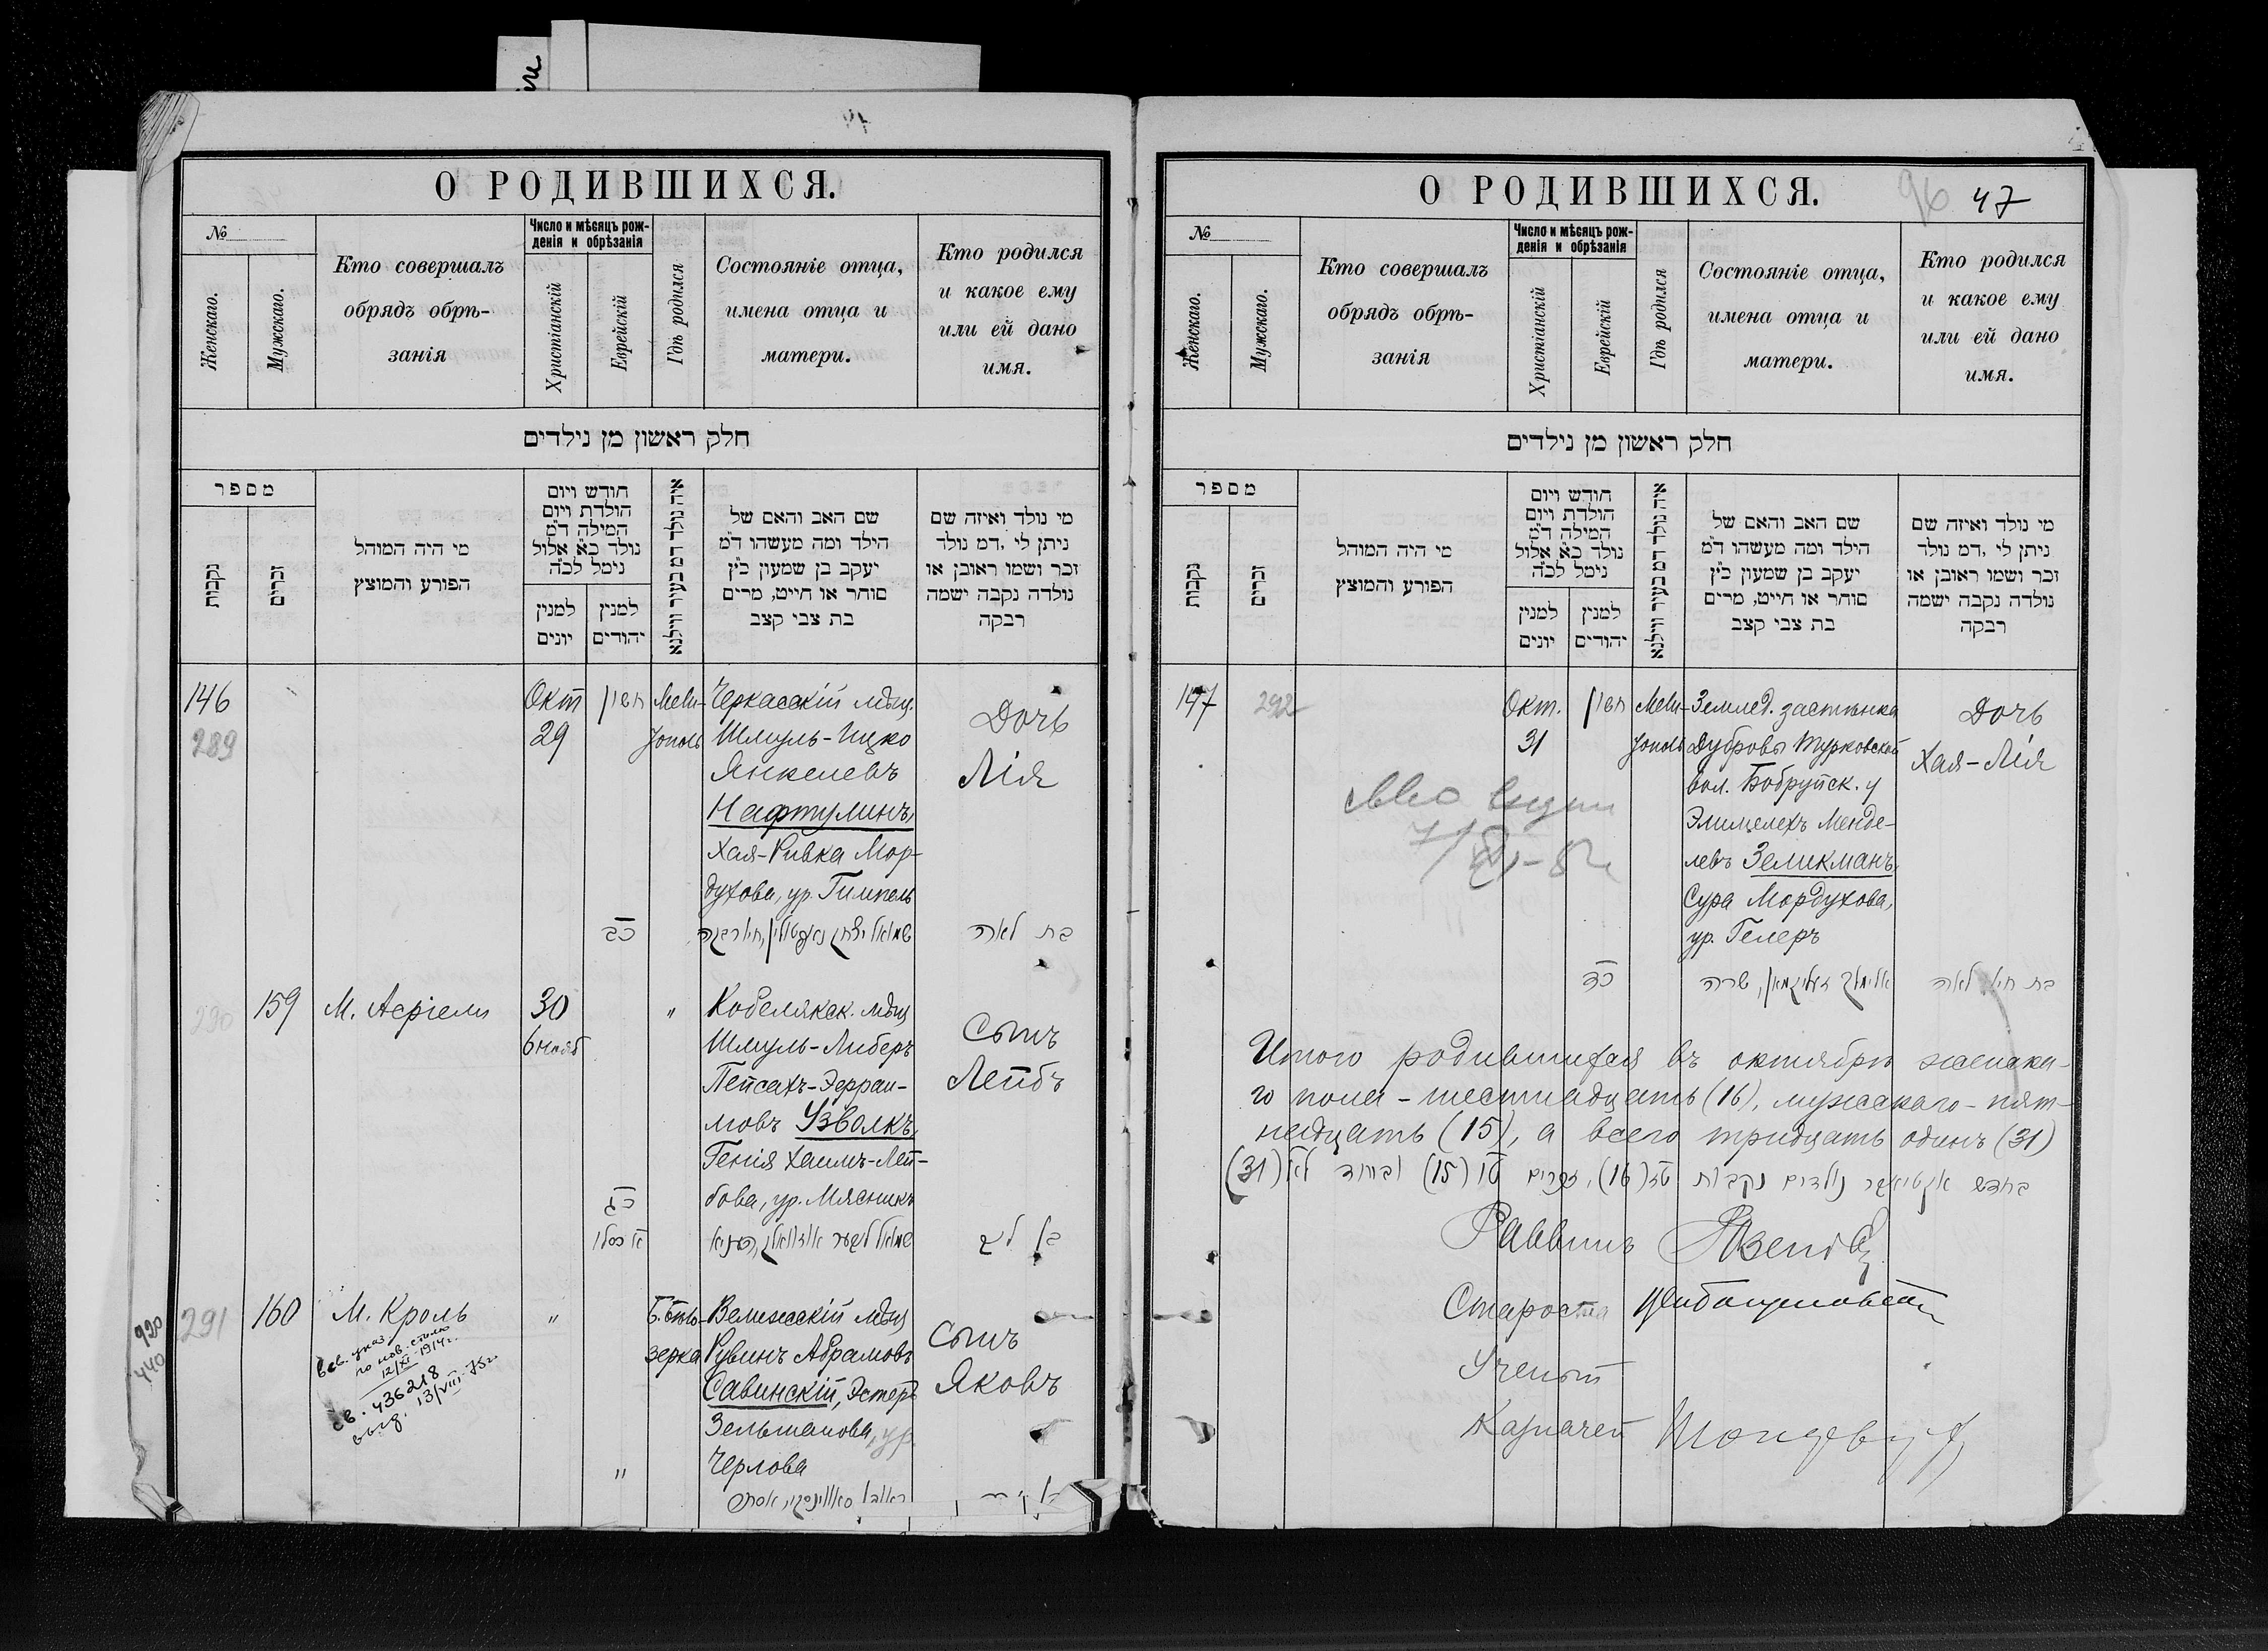 О РОДИВШИХСЯ.
№
Женскаго.
Мужскаго.
Кто совершалъ
обрядъ обрѣ-
занія
Число и мѣсяцъ рож-
денія и обрѣзанія
Христіанскій
Еврейскій
Гдѣ родился
Состояніе отца,
имена отца и
матери.
Кто родился
и какое ему
или ей дано
имя.
חלק ראשון מן נילדים
מספר
נקבות
זכרים
מי היה המוהל
הפורע והמוצץ
חודש ויום
הולדת ויום
המילה ד"מ
נולד כ"א אלול
נימל לכ"ה
למנין
יונים
למנין
יהודים
איה נולד דמ בעיר ווילנא
שם האב והאם של
הילד ומה מעשהו ד"מ
יעקב בן שמעון כ"ץ
סוחר או חייט, מרים
בת צבי קצב
מי נולד ואיזה שם
ניתן לי ,דמ נולד
זכר ושמו ראובן או
נולדה נקבה ישמה
רבקה
146
289
Окт
29
חשון
כב
Мели-
тополь
Черкасскій мѣщ.
Шмуль-Ицко
Янкелевъ
Нафтулинъ,
Хая-Ривка Мор-
духова, ур. Гимпель
Дочь
Лія
בת לאה
159
М. Асріели
30
6 нояб
"
כג
א כסלו
Кобелякск. мѣщ
Шмуль-Либеръ
Пейсахъ-Эфраи-
мовъ Узволкъ,
Генія Хаимъ-Лей-
бова, ур. Мясникъ
Сынъ
Лейбъ
920
440
291
160
М. Кроль
12/XI 1914 г.
св. 436218
выд. 13/VIII-75г.
"
"
Велижскій мѣщ
Рувинъ Абрамовъ
Савинскій, Эстеръ
Зельманова, ур.
Черлова
Сынъ
Яковъ
О РОДИВШИХСЯ.
96 47
№
Женскаго.
Мужскаго.
Кто совершалъ
обрядъ обрѣ-
занія
Число и мѣсяцъ рож-
денія и обрѣзанія
Христіанскій
Еврейскій
Гдѣ родился
Состояніе отца,
имена отца и
матери.
Кто родился
и какое ему
или ей дано
имя.
חלק ראשון מן נילדים
מספר
נקבות
זכרים
מי היה המוהל
הפורע והמוצץ
חודש ויום
הולדת ויום
המילה ד"מ
נולד כ"א אלול
נימל לכ"ה
למנין
יונים
למנין
יהודים
איה נולד דמ בעיר ווילנא
שם האב והאם של
הילד ומה מעשהו ד"מ
יעקב בן שמעון כ"ץ
סוחר או חייט, מרים
בת צבי קצב
מי נולד ואיזה שם
ניתן לי ,דמ נולד
זכר ושמו ראובן או
נולדה נקבה ישמה
רבקה
147
292
Окт.
31
חשון
כד
Мели-
тополь
Землед. застѣнка
Дубровы Турковской
вол. Бобруйск. у
Элимелехъ Менде-
левъ Зеликманъ,
Сура Мордухова,
ур. Гелеръ
אלימלך זעליגמאן, שרה
Дочь
Хая-Лія
בת חיה לאה
Итого родившихся въ октябрѣ женска-
го пола - шестнадцать (16), мужскаго - пят-
надцать (15), а всего тридцать одинъ (31)
בחדש אקטיאבר נולדים נקבות טז (16), זכרים טו (15) וביחד לא (31)
Раввинъ
Староста
Ученый
Казначей